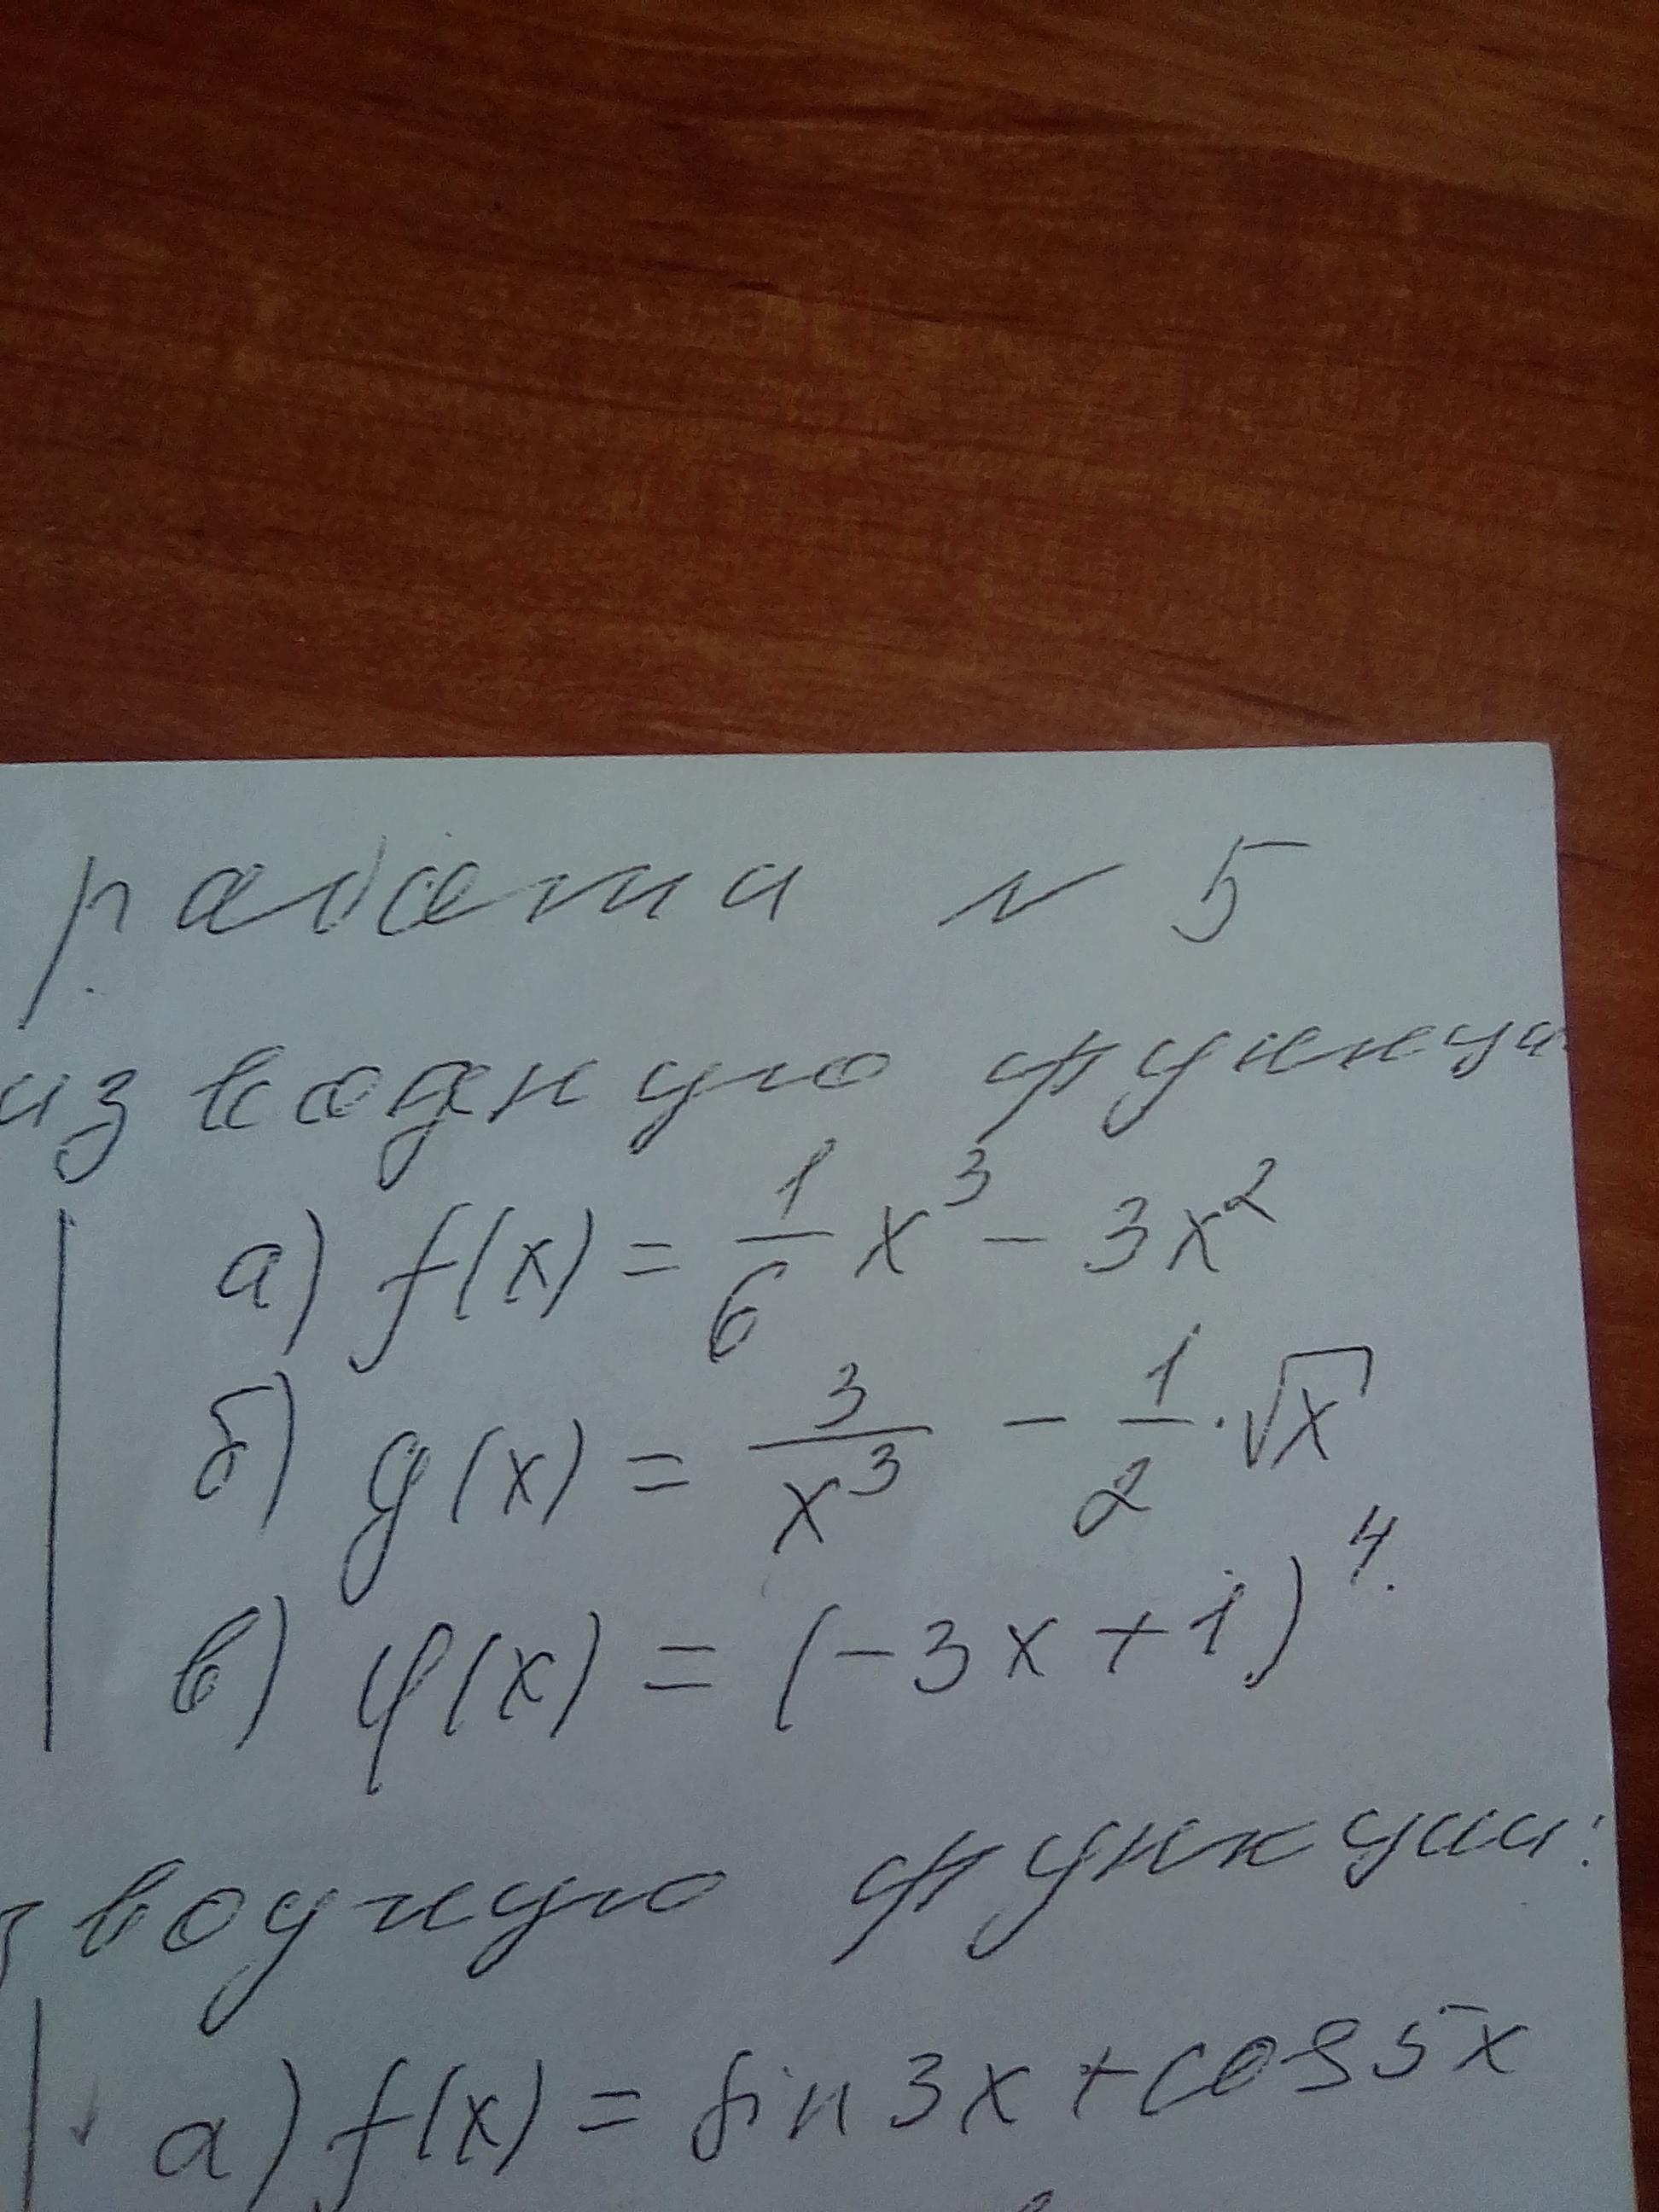 работа № 5
изводную функци
а) f(x) = 1/6 x³ - 3x²
б) g(x) = 3/x³ - 1/2 · √x
в) φ(x) = (-3x+1)⁴.
зводную функции:
а) f(x) = sin 3x + cos 5x